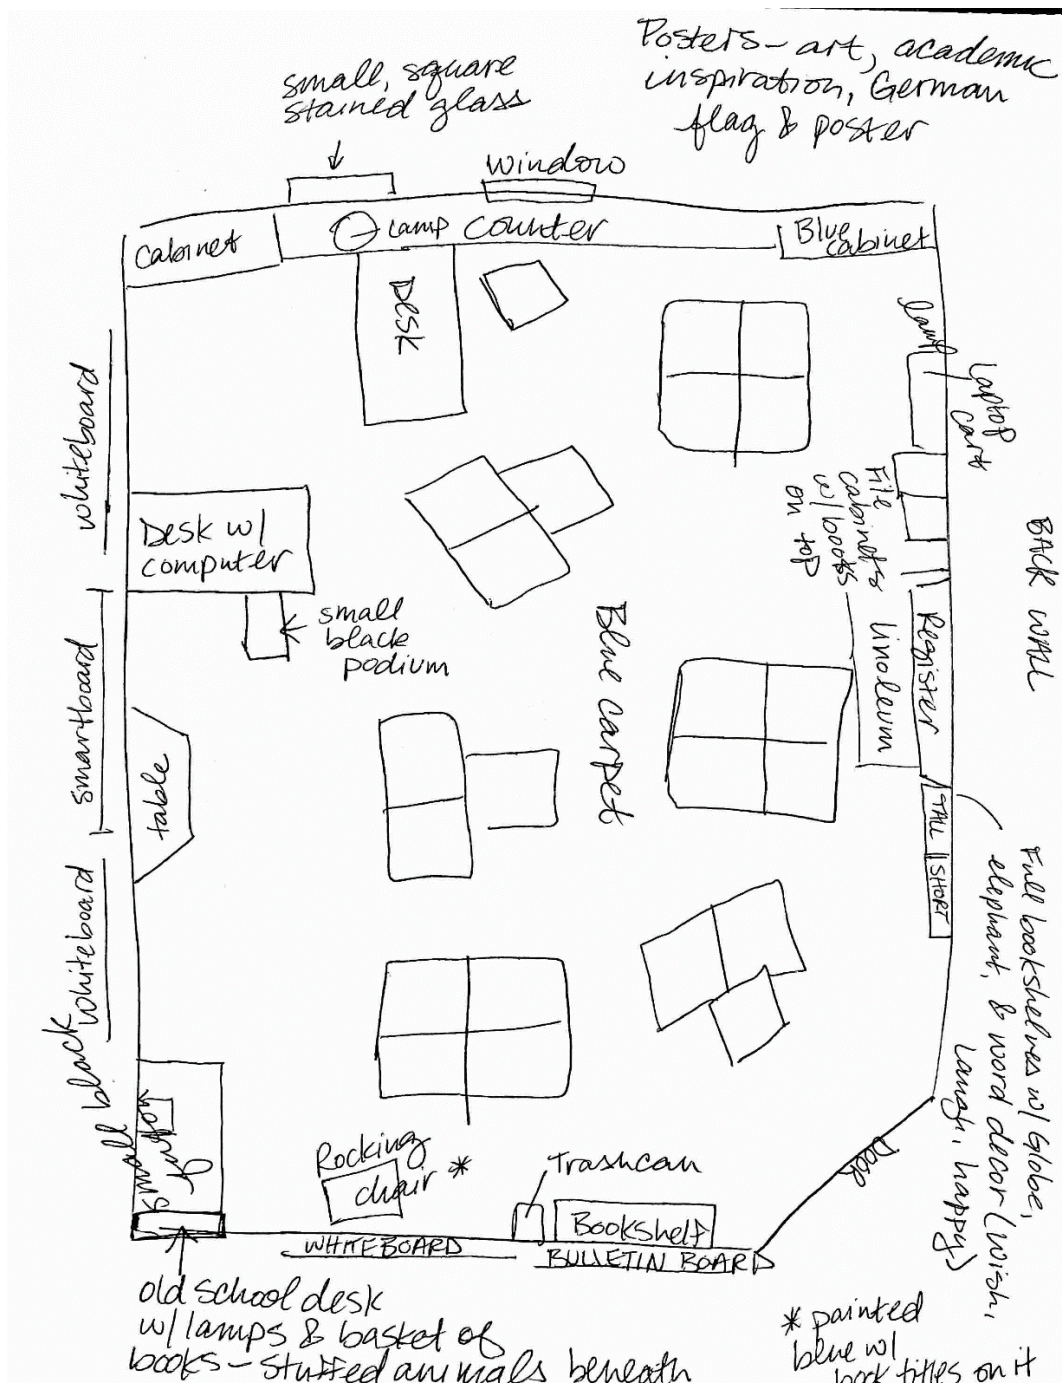 Posters - art, academic
inspiration, German
flag & poster
small, square
stained glass
window
Cabinet
Lamp Counter
Blue
cabinet
DESK
lamp
laptop
cart
whiteboard
File
cabinets
w/ books
on top
BACK WALL
Desk w/
computer
small
black
podium
Blue carpet
Register
linoleum
smartboard
table
TALL
SHORT
Full bookshelves w/ Globe,
elephant, & word decor (wish,
laugh, happy)
whiteboard
small black
futon
Door
Rocking
chair *
Trashcan
Bookshelf
WHITEBOARD
BULLETIN BOARD
old school desk
w/ lamps & basket of
books - stuffed animals beneath
* painted
blue w/
book titles on it